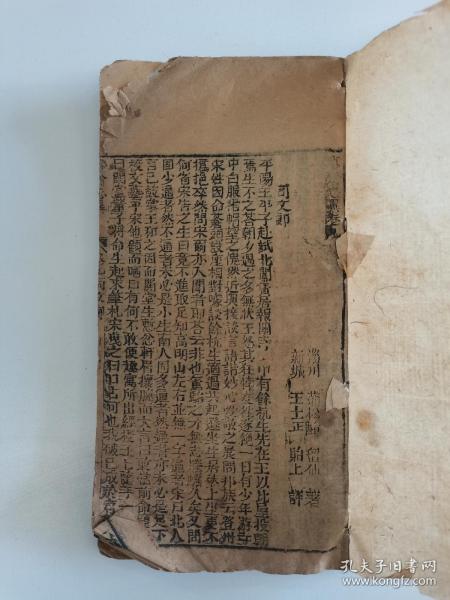 淄川 蒲松齡 留仙 著
新城 王士正 貽上 評
司文郎
平陽王平子赴試北闈賃居報國寺寺中有餘杭生先在王以比屋投刺
焉生不之荅朝夕遇之多無狀王怒其狂悖交往遂絕一日有少年遊寺
中白服裙帽望之傀然近與接談言語諧妙心愛敬之展問邦族云登州
宋姓因命蒼頭設座相對噱談餘杭生適過共起遜坐生居然上坐更不
撝挹卒然問宋爾亦入闈者耶荅云非也駑駘之才無志騰驤久矣又問
何省宋告之生曰竟不進取足知高明山左右並無一字通者宋曰北人
固少通者然不通者未必是小生南人固多通者然通者亦未必是足下
言已鼓掌王和之因而鬨堂生慚忿軒眉攘腕而大言曰敢當前命題一
校文藝乎宋他顧而哂曰有何不敢便趨寓所出經授王王隨手一
曰闕黨童子將命生起求筆札宋曳之曰口占可也我破已成於賓
孔夫子旧书网
www.kongfz.com